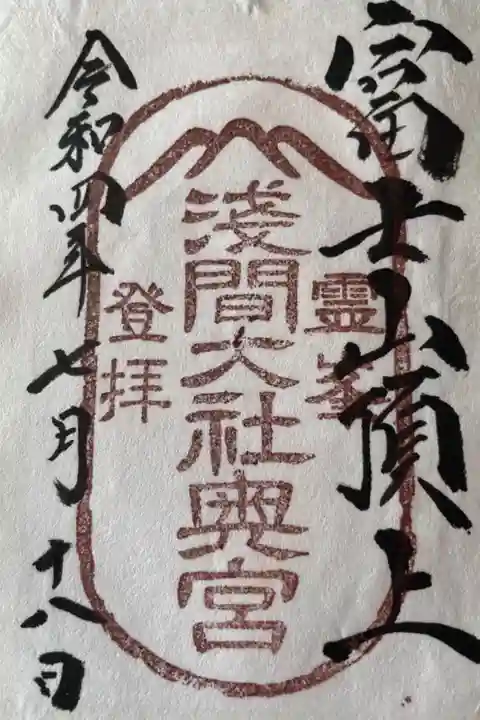 富士山頂上
霊峯
浅間大社奥宮
登拝
令和四年七月十八日